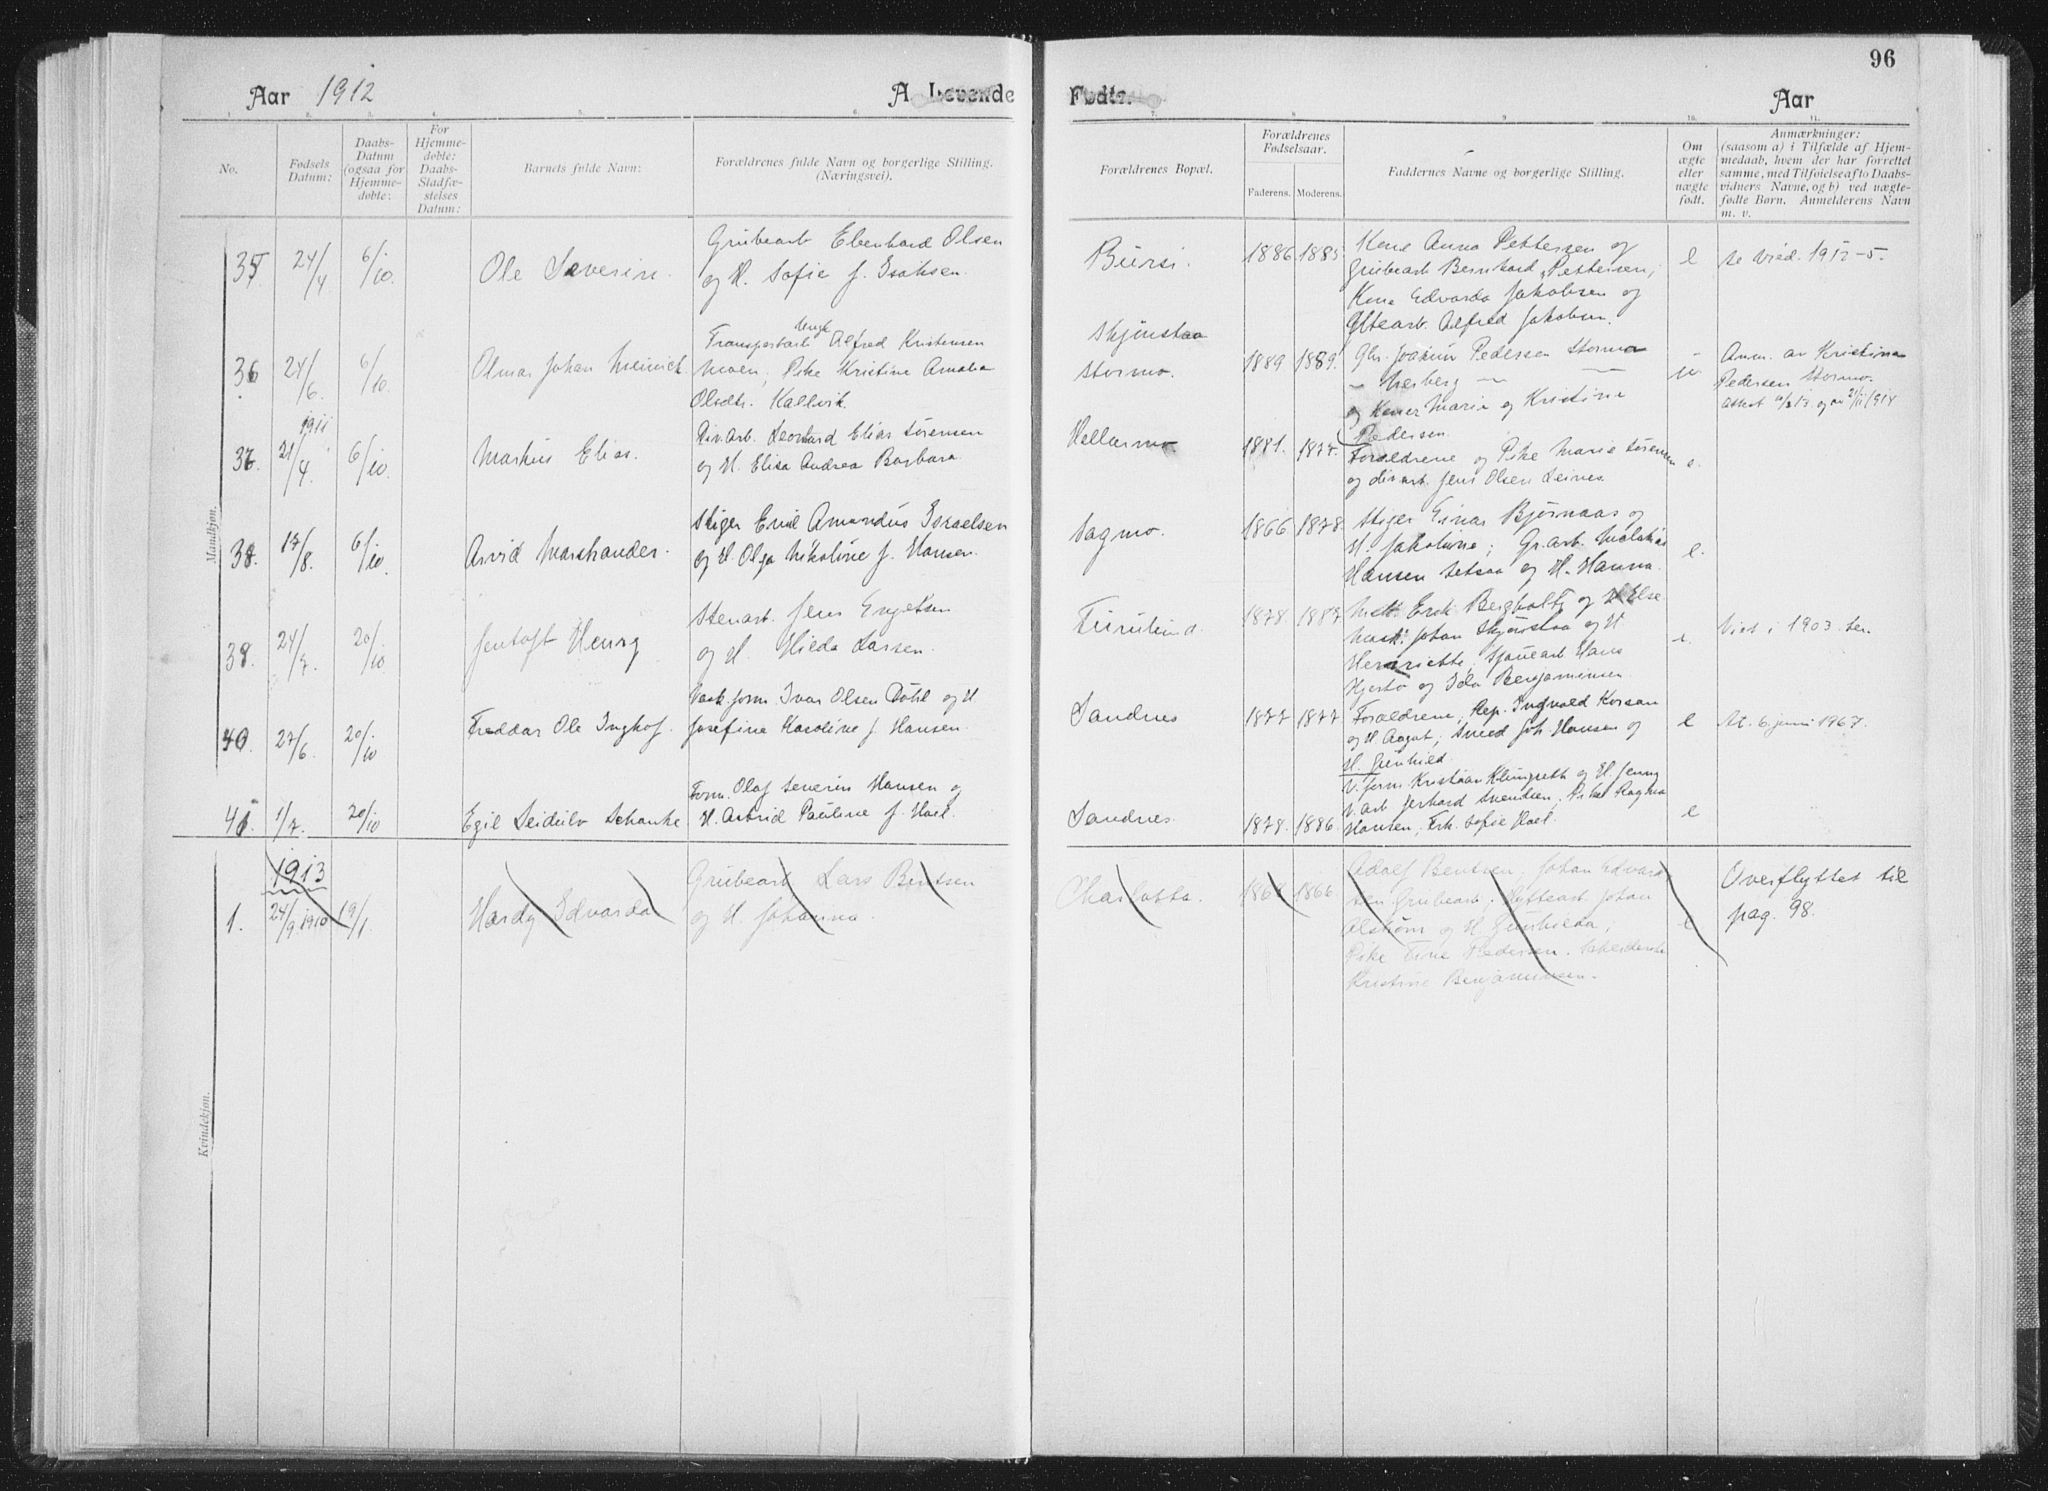 96
Aar 1912
A. Levende
Fødte.
Aar
1.
2.
3.
4.
5.
6.
7.
8.
9.
10.
11.
No.
Fødsels
Datum:
Daabs-
Datum
(ogsaa for
Hjemme-
døbte:
For
Hjemme-
døbte:
Daabs-
Stadfæ-
stelses
Datum:
Barnets fulde Navn:
Forældrenes fulde Navn og borgerlige Stilling.
(Næringsvei).
Forældrenes Bopæl.
Forældrenes
Fødselsaar.
Faderens.
Moderens.
Faddernes Navne og borgerlige Stilling.
Om
ægte
eller
uægte
født.
Anmærkninger:
(saasom a) i Tilfælde af Hjem-
medaab, hvem der har forrettet
samme, med Tilføielse af to Daabs-
vidners Navne, og b) ved uægte-
fødte Børn. Anmelderens Navn
m. v.
Mandkjøn.
35. 24/4 6/10. Ole Severin.
Grubearb Eberhard Olsen
og H. Sofie f. Isaksen.
Bursi. 1886. 1885.
Kone Anna Pettersen og
Grubearb Bernhard Pettersen;
Kone Edvarda Jakobsen og
Hyttearb. Alfred Jakobsen.
e
se vied. 1912-5.
36 24/6. 6/10. Olmar Johan Meinick
Ungk
Transportarb Alfred Kristensen
Moen; Pike Kristine Amalia
Olsdtr. Kallvik.
Skjønstaa
Stormo. 1889 1889.
Gbr. Joakim Pedersen Stormo
og Koner Marie og Kristine
Pedersen.
Anm. av Kristina
Pedersen Stormo.
37. 1911 21/4. 6/10. Markus Elias.
Div.arb. Leonhard Elias Sørensen
og H. Elisa Andrea Barbara.
Hellarmo 1881. 1877.
Forældrene og Pike Marie Sørensen
og div.arb. Jens Olsen Leines.
e.
38. 17/8. 6/10. Arvid Marshander.
Stiger Emil Amandus Israelsen
og H Olga Nikoline f. Hansen.
Sagmo. 1866 1878.
Stiger Einar Bjørnaas og
H. Jakobine; Gr.arb. Malakias
Hansen Setsaa og H. Hanna.
e.
39. 24/7. 20/10 Jentoft Henry
Stenarb. Jens Engetsen
og H. Hilda Larsen.
Furulund. 1878. 1887
Mask. Erik Bergholtz og H Else
Mask. Johan Skjønstaa og H
Henriette; Hans
og Ida Benjaminsen
e.
Viet i 1903.
40. 27/6. 20/10 Freddar Ole Inghof.
Vask.form. Ivar Olsen Døhl og H
Josefine Karoline f. Hansen.
Sandnes 1877 1877.
Forældrene, Rep. Ingvald Korsan
og H Aagot; Smed Joh. Hansen og
H. Gunhild
e
At. 6. juni 1967.
41. 1/7. 20/10 Egil Seidulv Schanke
Form. Olaf Severin Hansen og
H. Astrid Pauline f. Hael.
Sandnes. 1878. 1886.
V. form Kristian Klingseth og H. Jenny
V. arb Gerhard Svendsen; Pike Ragna
Hansen; Frk. Sofie Hael.
e
Kvindekjøn.
1913
1. 24/9 1910 19/1. Hardy Edvarda
Grubearb Lars Bentsen
og H. Johanna.
Charlotta. 1864 1866
Adolf Bentsen; Johan Edvard-
sen Grubearb; Hyttearb Johan
Alstrøm og H Gunhilda;
Pike Tine Pedersen.
Kristine Benjaminsen.
e
Overflyttet til
pag. 98.